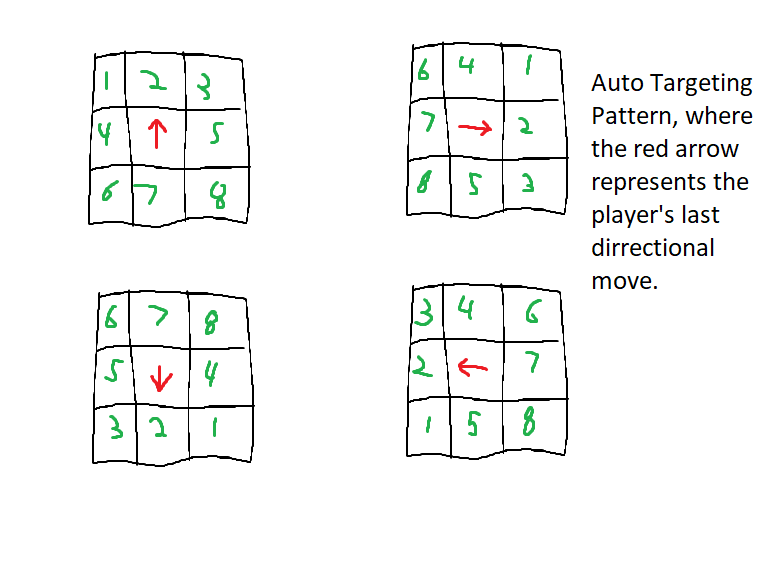 1 2 3
4 5
6 7 8
6 4 1
7 2
8 5 3
Auto Targeting
Pattern, where
the red arrow
represents the
player's last
dirrectional
move.
6 7 8
5 4
3 2 1
3 4 6
2 7
1 5 8